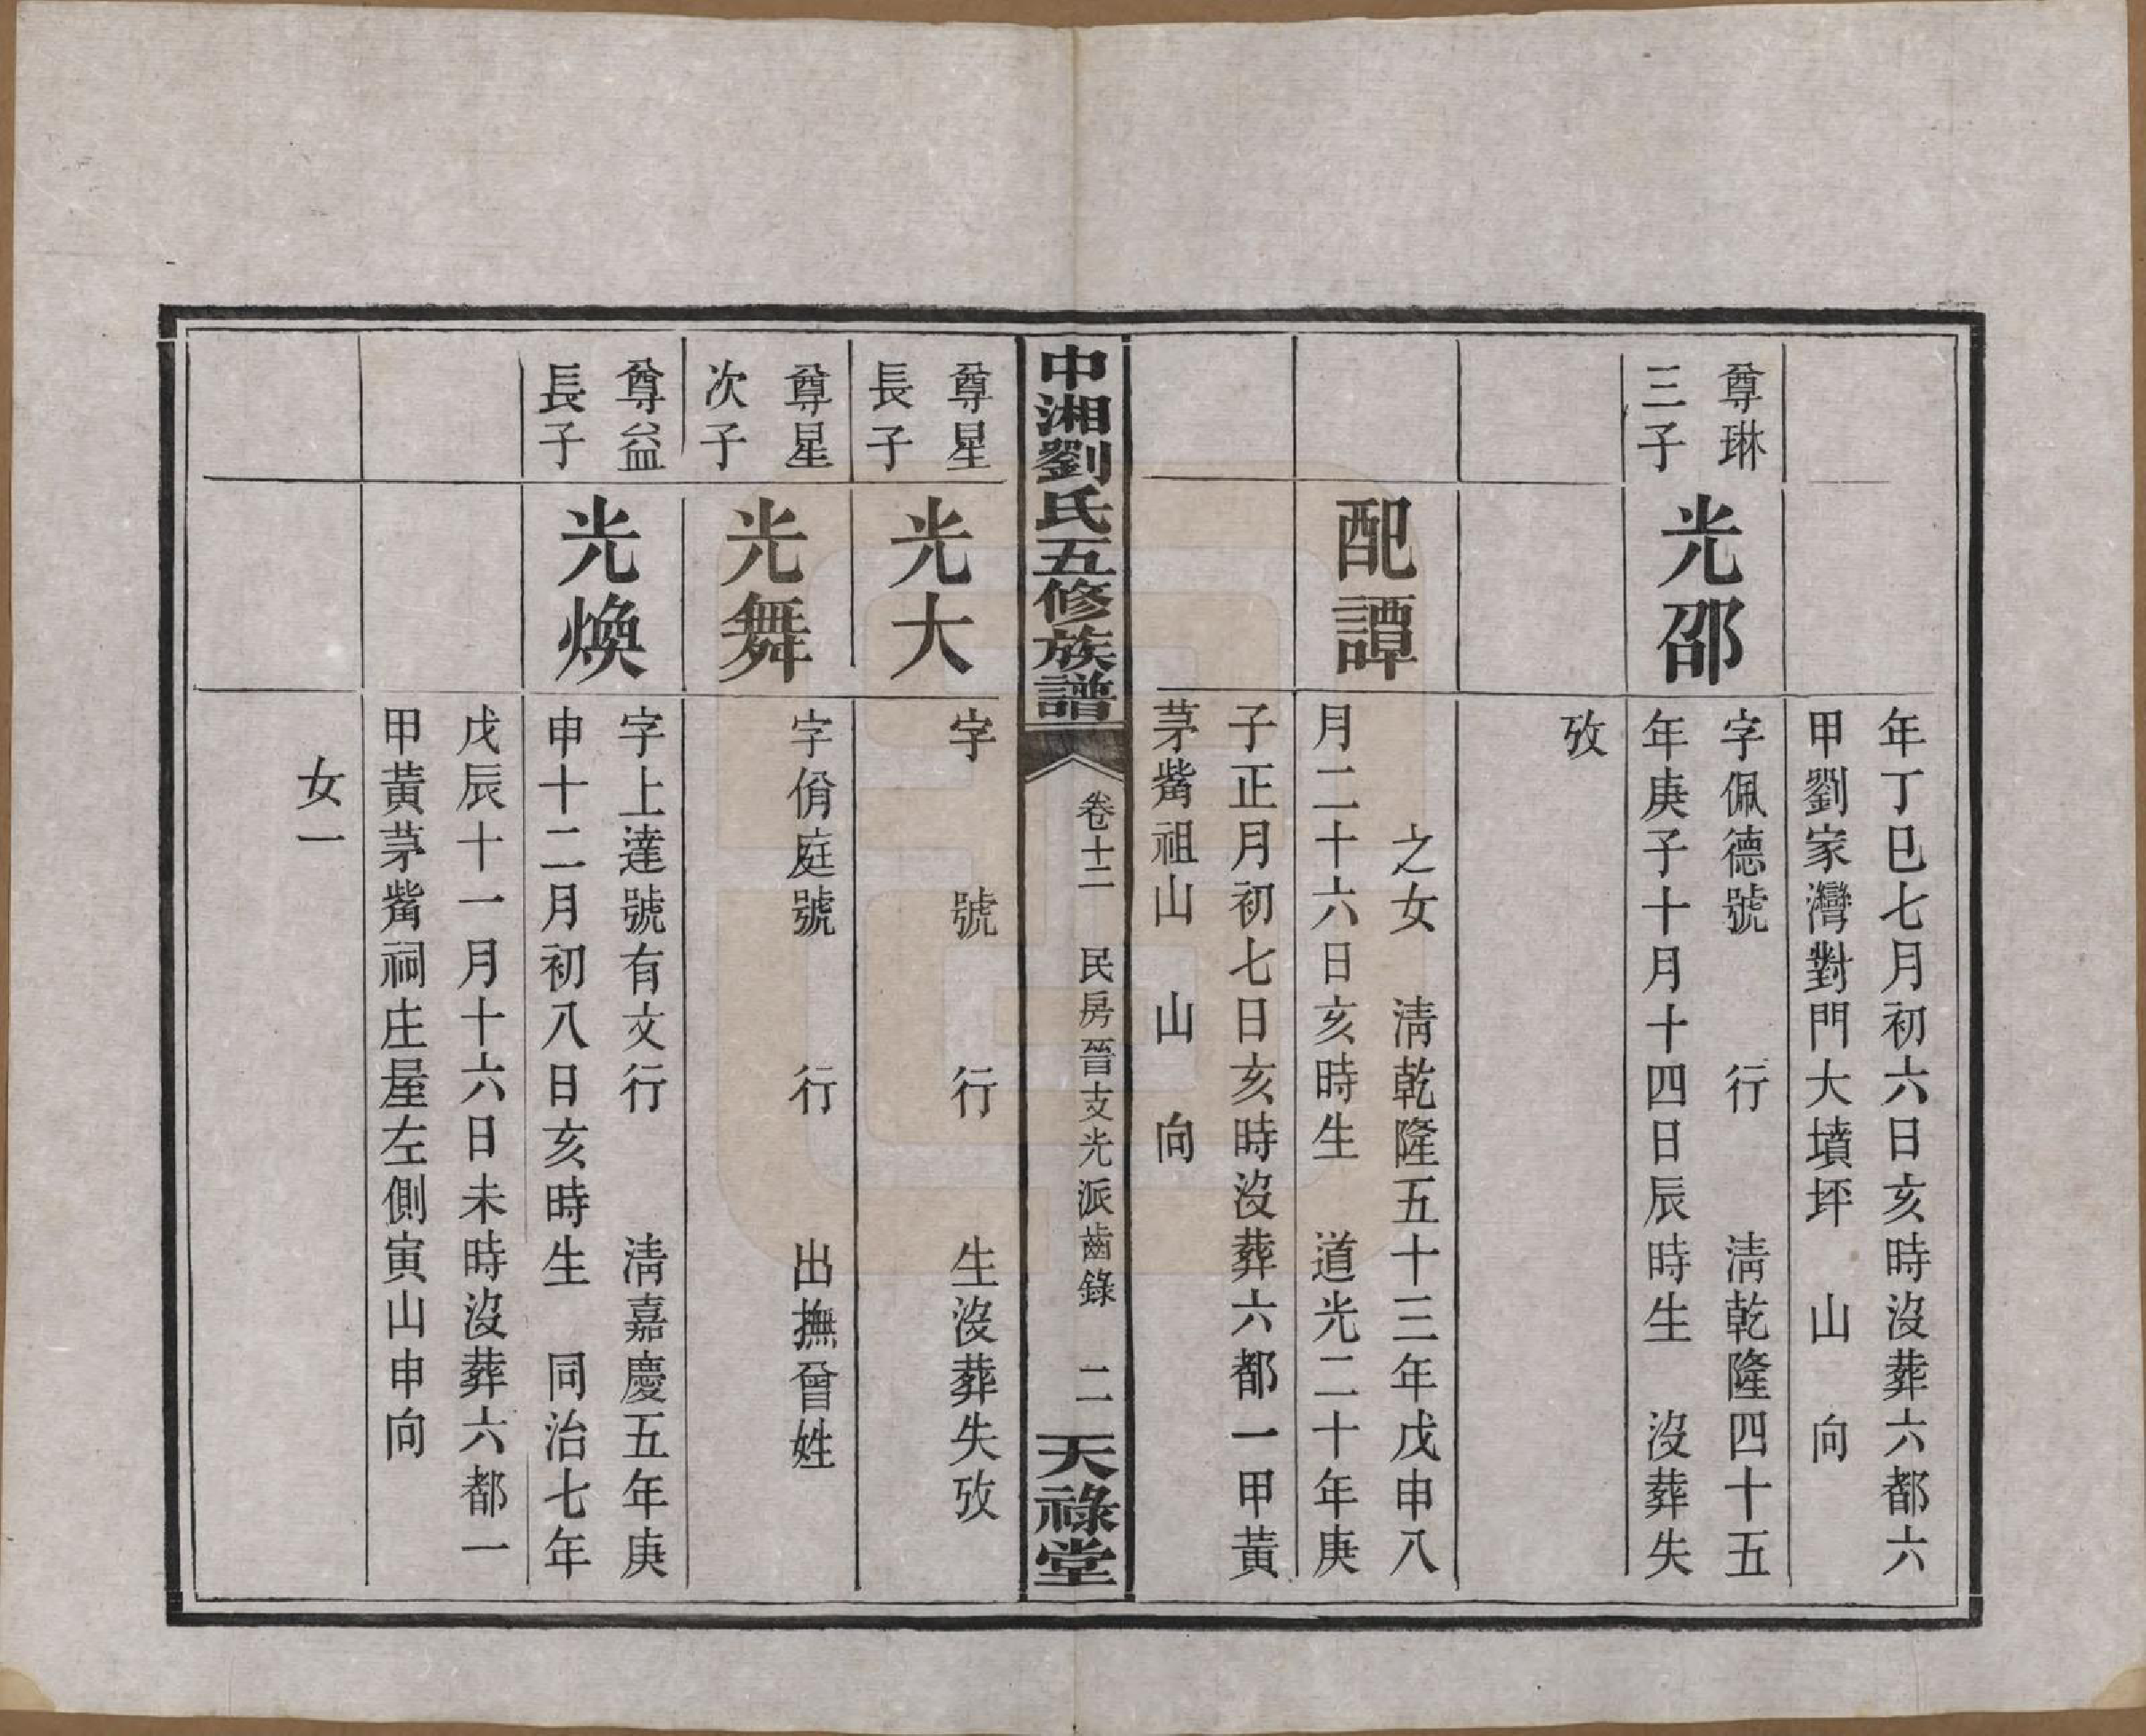 年丁巳七月初六日亥時沒葬六都六
甲劉家灣對門大墳坪　山　向
尊琳
三子
光邵
字佩德號　　行　　淸乾隆四十五
年庚子十月十四日辰時生　沒葬失
攷
配譚
之女　淸乾隆五十三年戊申八
月二十六日亥時生　道光二十年庚
子正月初七日亥時沒葬六都一甲黃
茅觜祖山　山　向
中湘劉氏五修族譜
卷十二　民房晉支光派齒錄　二
天祿堂
尊星
長子
光大
字　　號　　行　　生沒葬失攷
尊星
次子
光舞
字佾庭號　　行　　出撫曾姓
尊益
長子
光煥
字上達號有文行　　淸嘉慶五年庚
申十二月初八日亥時生　同治七年
戊辰十一月十六日未時沒葬六都一
甲黃茅觜祠庄屋左側寅山申向
女一